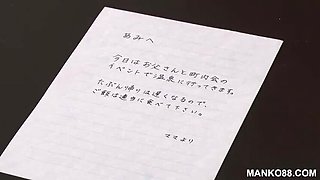 あみへ
今日はお父さんと町内会の
イベントで温泉に行ってきます。
たぶん帰りは遅くなるので、
ご飯は適当に食べて下さい。
ママより
MANKO88.COM